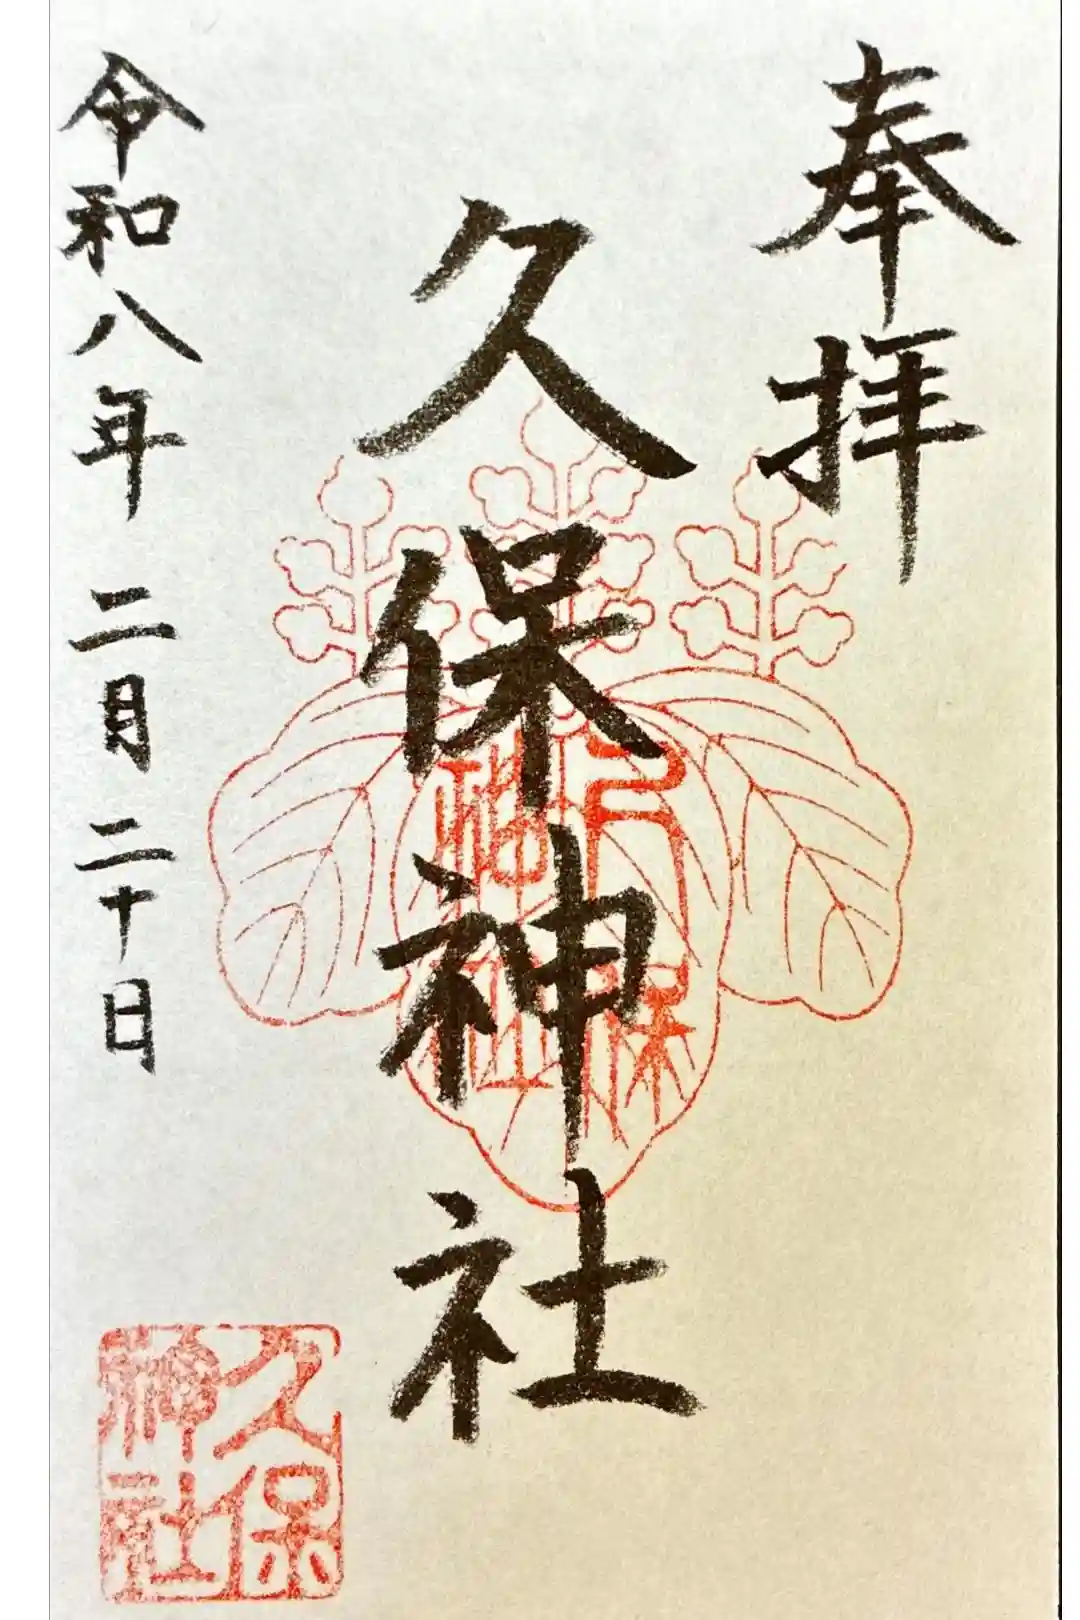 奉拝
久保神社
久保神社
令和八年二月二十日
久保神社